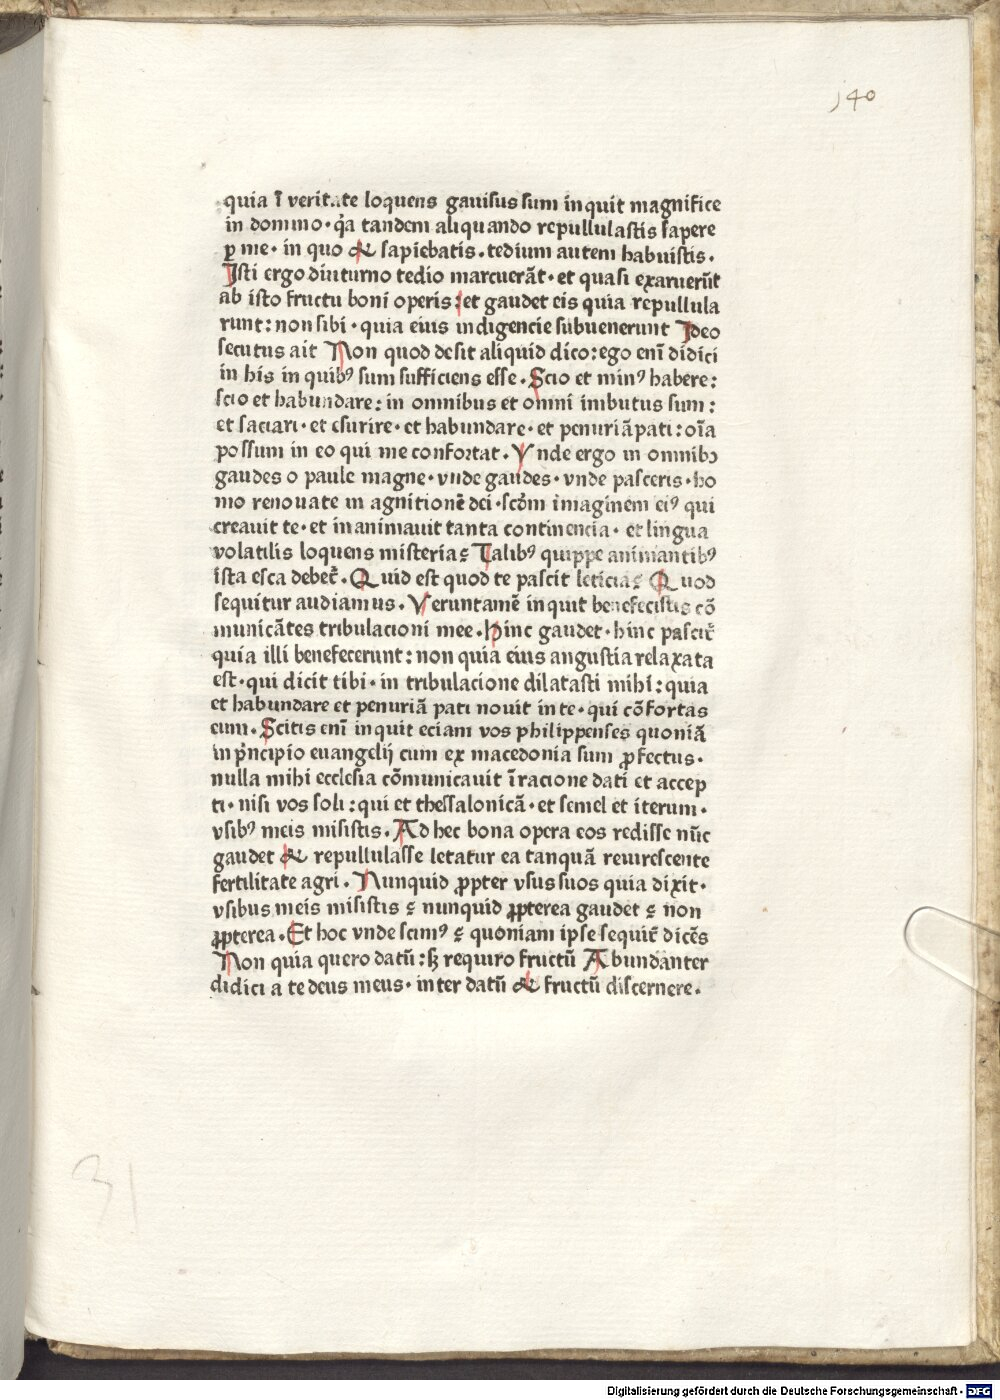 140
quia ī veritate loquens gavisus sum inquit magnifice
in domino · q̄a tandem aliquando repullulastis sapere
ꝑ me · in quo & sapiebatis . tedium autem habuistis .
Isti ergo diuturno tedio marcuerāt · et quasi exaruerūt
ab isto fructu boni operis : et gaudet eis quia repullula
runt : non sibi · quia eius indigencie subuenerunt Ideo
secutus ait Non quod desit aliquid dico : ego enī didici
in his in quibꝰ sum sufficiens esse . Scio et minꝰ habere :
scio et habundare : in omnibus et omni imbutus sum :
et saciari · et esurire · et habundare · et penuriā pati : oīa
possum in eo qui me confortat . Vnde ergo in omnibꝫ
gaudes o paule magne · vnde gaudes · vnde pasceris · ho
mo renouate in agnitionē dei · scd̄m imaginem eiꝰ qui
creauit te · et inanimauit tanta continencia · et lingua
volatilis loquens misteria ? Talibꝰ quippe animantibꝰ
ista esca debet̄ . Quid est quod te pascit leticia ? Quod
sequitur audiamus . Veruntamē inquit benefecistis cō
municātes tribulacioni mee . Hinc gaudet · hinc pascit̄
quia illi benefecerunt : non quia eius angustia relaxata
est · qui dicit tibi · in tribulacione dilatasti mihi : quia
et habundare et penuriā pati nouit in te · qui cōfortas
eum . Scitis enī inquit eciam vos philippenses quoniā
in p̄ncipio euangelij cum ex macedonia sum ꝓfectus .
nulla mihi ecclesia cōmunicauit ī racione dati et accep
ti · nisi vos soli : qui et thessalonicā · et semel et iterum .
vsibꝰ meis misistis . Ad hec bona opera eos redisse nūc
gaudet & repullulasse letatur ea tanquā reuirescente
fertilitate agri . Nunquid ꝓpter vsus suos quia dixit .
vsibus meis misistis ? nunquid ꝓpterea gaudet ? non
ꝓpterea . Et hoc vnde scimꝰ ? quoniam ipse sequit̄ dicēs
Non quia quero datū : sꝫ requiro fructū Abundanter
didici a te deus meus · inter datū & fructū discernere .
31
Digitalisierung gefördert durch die Deutsche Forschungsgemeinschaft · DFG